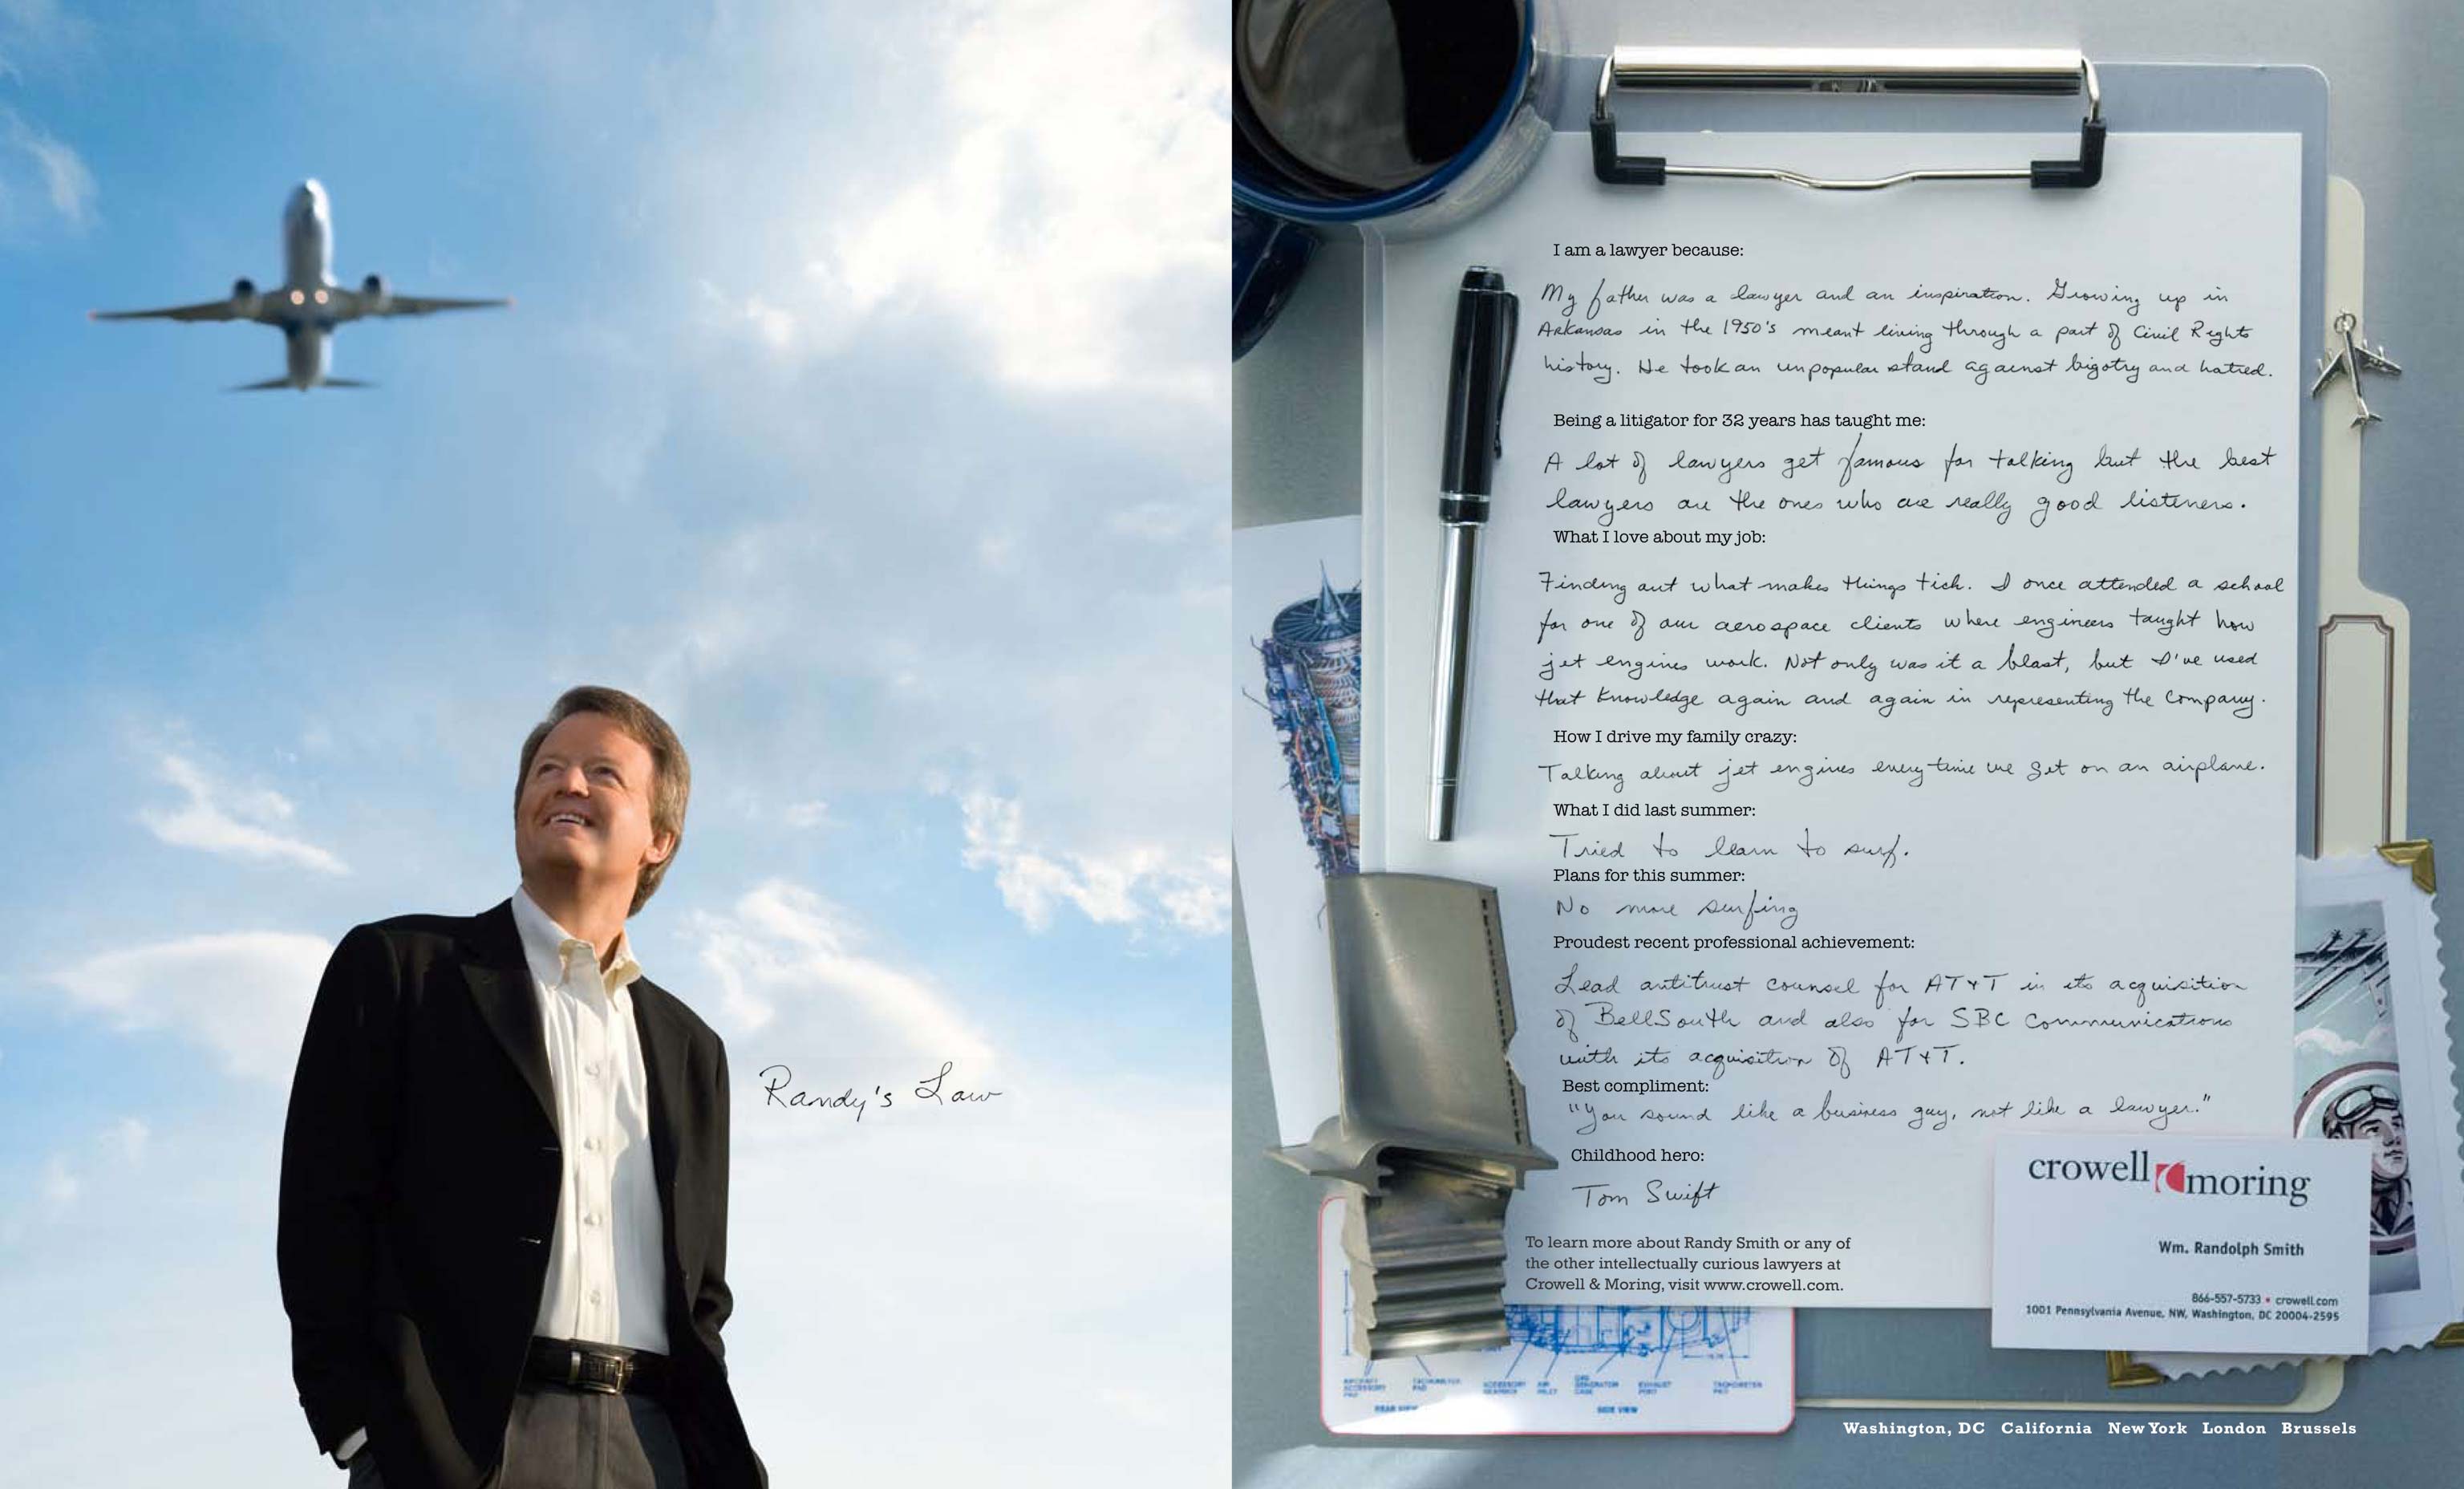 Randy's Law
I am a lawyer because:
My father was a lawyer and an inspiration. Growing up in
Arkansas in the 1950's meant living through a part of Civil Rights
history. He took an unpopular stand against bigotry and hatred.
Being a litigator for 32 years has taught me:
A lot of lawyers get famous for talking but the best
lawyers are the ones who are really good listeners.
What I love about my job:
Finding out what makes things tick. I once attended a school
for one of our aerospace clients where engineers taught how
jet engines work. Not only was it a blast, but I've used
that knowledge again and again in representing the company.
How I drive my family crazy:
Talking about jet engines every time we get on an airplane.
What I did last summer:
Tried to learn to surf.
Plans for this summer:
No more surfing
Proudest recent professional achievement:
Lead antitrust counsel for AT&T in its acquisition
of BellSouth and also for SBC Communications
with its acquisition of AT&T.
Best compliment:
"You sound like a business guy, not like a lawyer."
Childhood hero:
Tom Swift
To learn more about Randy Smith or any of
the other intellectually curious lawyers at
Crowell & Moring, visit www.crowell.com.
crowell moring
Wm. Randolph Smith
866-557-5733 • crowell.com
1001 Pennsylvania Avenue, NW, Washington, DC 20004-2595
AIRCRAFT ACCESSORY PAD
TACHOMETER PAD
ACCESSORY GEARBOX
AIR INLET
GAS GENERATOR CASE
EXHAUST PORT
TACHOMETER PAD
REAR VIEW
SIDE VIEW
Washington, DC California New York London Brussels